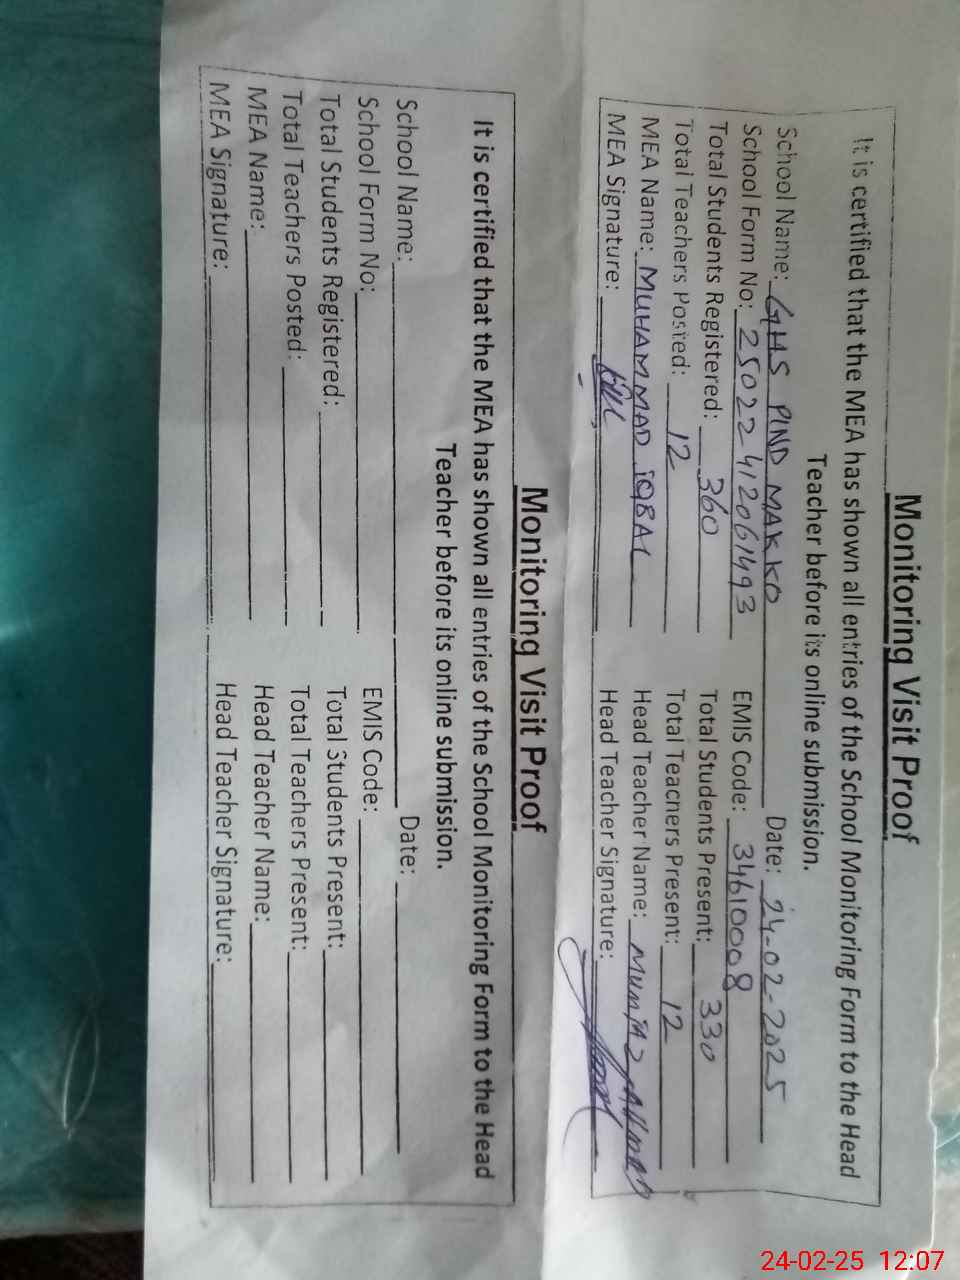 Monitoring Visit Proof
It is certified that the MEA has shown all entries of the School Monitoring Form to the Head
Teacher before its online submission.
School Name: GHS PIND MAKKO Date: 24-02-2025
School Form No: 25022412061493 EMIS Code: 34610008
Total Students Registered: 360 Total Students Present: 330
Total Teachers Posted: 12 Total Teachers Present: 12
MEA Name: MUHAMMAD iQBAL Head Teacher Name: MUMTAZ AHMAD
MEA Signature: Head Teacher Signature:
Monitoring Visit Proof
It is certified that the MEA has shown all entries of the School Monitoring Form to the Head
Teacher before its online submission.
School Name: Date:
School Form No: EMIS Code:
Total Students Registered: Total Students Present:
Total Teachers Posted: Total Teachers Present:
MEA Name: Head Teacher Name:
MEA Signature: Head Teacher Signature:
24-02-25 12:07